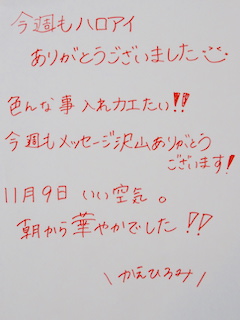 今週もハロアイ
ありがとうございました
色んな事入れカエたい!!
今週もメッセージ沢山ありがとう
ございます!
11月9日 いい空気。
朝から華やかでした!!
\かえひろみ/